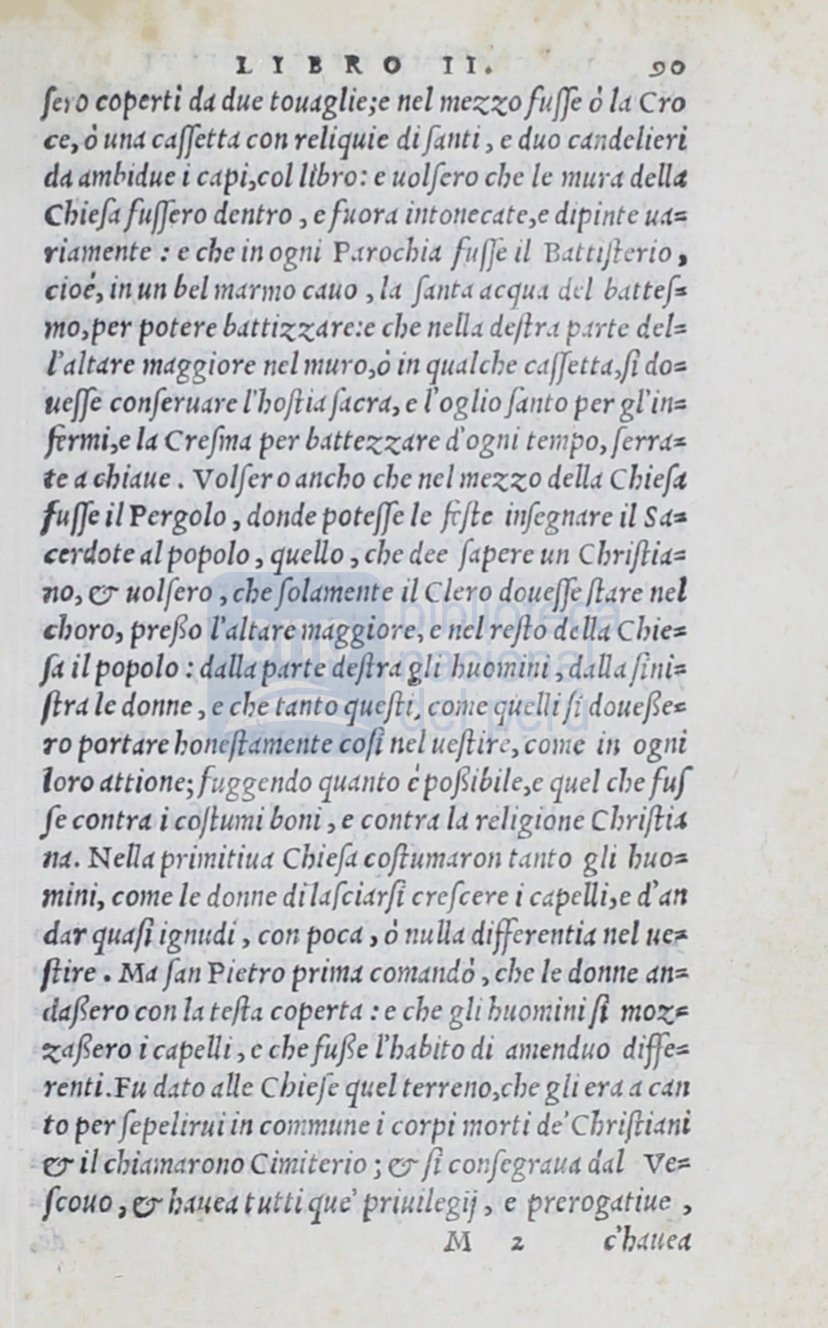 LIBRO II. 90
ſero coperti da due touaglie;e nel mezzo fuſſe ò la Cro
ce, ò una caſſetta con reliquie di ſanti, e duo candelieri
da ambidue i capi,col libro: e uolſero che le mura della
Chieſa fuſſero dentro, e fuora intonecate,e dipinte ua=
riamente : e che in ogni Parochia fuſſe il Battiſterio,
cioé, in un bel marmo cauo, la ſanta acqua del batteſ=
mo,per potere battizzare:e che nella deſtra parte del=
l'altare maggiore nel muro,ò in qualche caſſetta,ſi do=
ueſſe conſeruare l'hoſtia ſacra, e l'oglio ſanto per gl'in=
fermi,e la Creſma per battezzare d'ogni tempo, ſerra=
te a chiaue. Volſero ancho che nel mezzo della Chieſa
fuſſe il Pergolo, donde poteſſe le feſte inſegnare il Sa=
cerdote al popolo, quello, che dee ſapere un Chriſtia=
no, & uolſero, che ſolamente il Clero doueſſe ſtare nel
choro, preßo l'altare maggiore, e nel reſto della Chie=
ſa il popolo : dalla parte deſtra gli huomini, dalla ſini=
ſtra le donne, e che tanto queſti, come quelli ſi doueße=
ro portare honeſtamente coſi nel ueſtire, come in ogni
loro attione; fuggendo quanto è poßibile,e quel che fuſ
ſe contra i coſtumi boni, e contra la religione Chriſtia
na. Nella primitiua Chieſa coſtumaron tanto gli huo=
mini, come le donne di laſciarſi creſcere i capelli,e d'an
dar quaſi ignudi, con poca, ò nulla differentia nel ue=
ſtire. Ma ſan Pietro prima comandò, che le donne an=
daßero con la teſta coperta : e che gli huomini ſi moz=
zaßero i capelli, e che fuße l'habito di amenduo diffe=
renti.Fu dato alle Chieſe quel terreno,che gli era a can
to per ſepelirui in commune i corpi morti de' Chriſtiani
& il chiamarono Cimiterio ; & ſi conſegraua dal Ve=
ſcouo, & hauea tutti que' priuilegij, e prerogatiue,
M 2 c'hauea
biblioteca
nacional
del perú